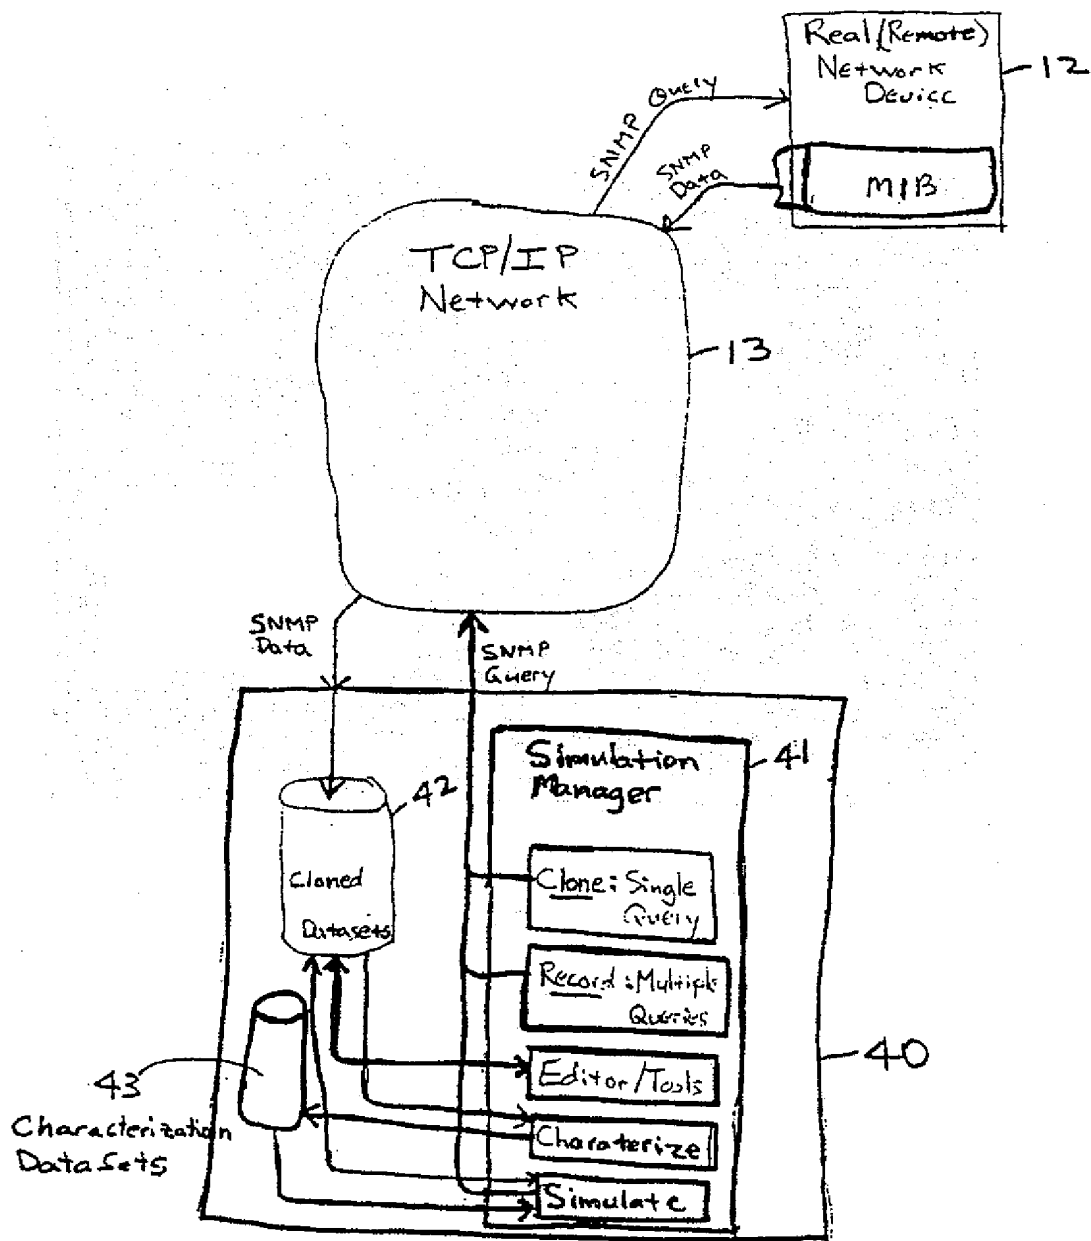 Real (Remote)
Network
Device
12
SNMP Query
SNMP
Data
MIB
TCP/IP
Network
13
SNMP
Data
SNMP
Query
Simulation
Manager
41
42
Cloned
Datasets
Clone: Single
Query
Record: Multiple
Queries
40
Editor/Tools
43
Characterization
DataSets
Charaterize
Simulate